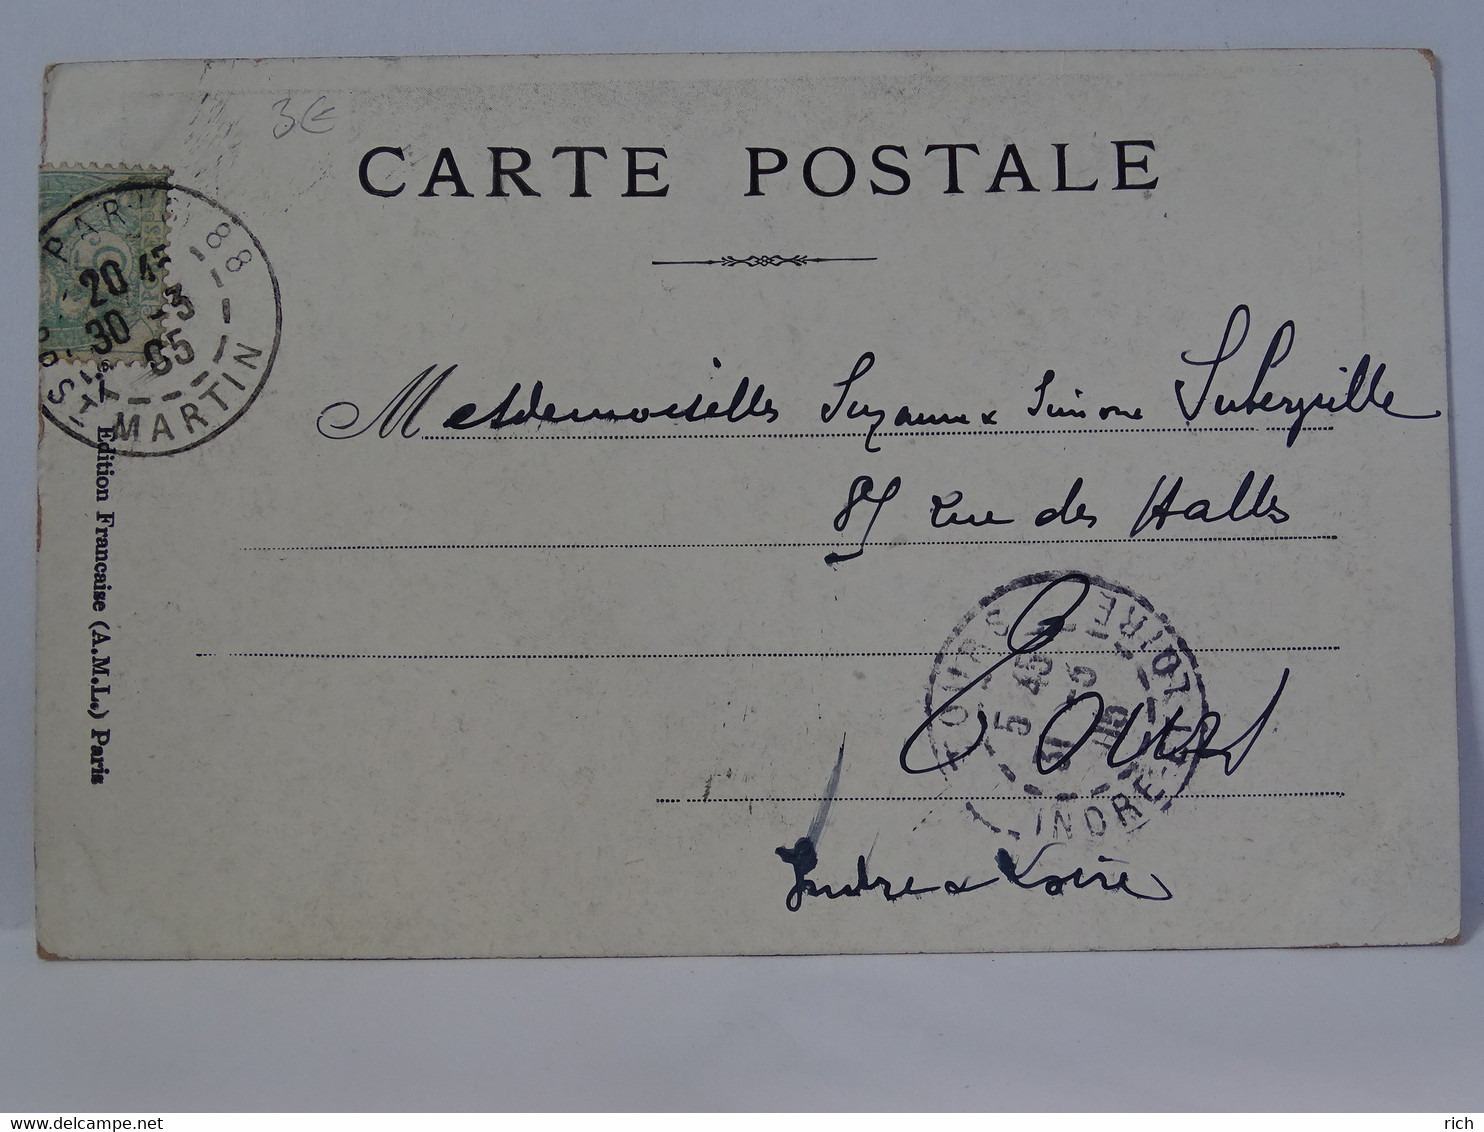 3€
CARTE POSTALE
PARIS 88
20 45
30 -3
05
ST MARTIN
Mesdemoiselles Suzanne & Simone Suberville
87 rue des Halles
Tours
Indre & Loire
TOURS
5 45
31 -3
05
INDRE-ET-LOIRE
Edition Francaise (A.M.L.) Paris
rich